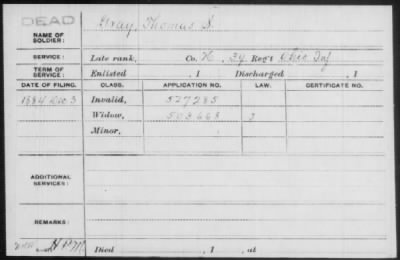 DEAD
NAME OF SOLDIER: Gray, Thomas S.
SERVICE: Late rank, Co. K, 39 Reg't Ohio Inf
TERM OF SERVICE: Enlisted , 1 Discharged , 1
DATE OF FILING. CLASS. APPLICATION NO. LAW. CERTIFICATE NO.
1884 Dec 3 Invalid, 527285
Widow, 503668
Minor,
ADDITIONAL SERVICES:
REMARKS:
Died , 1 , at